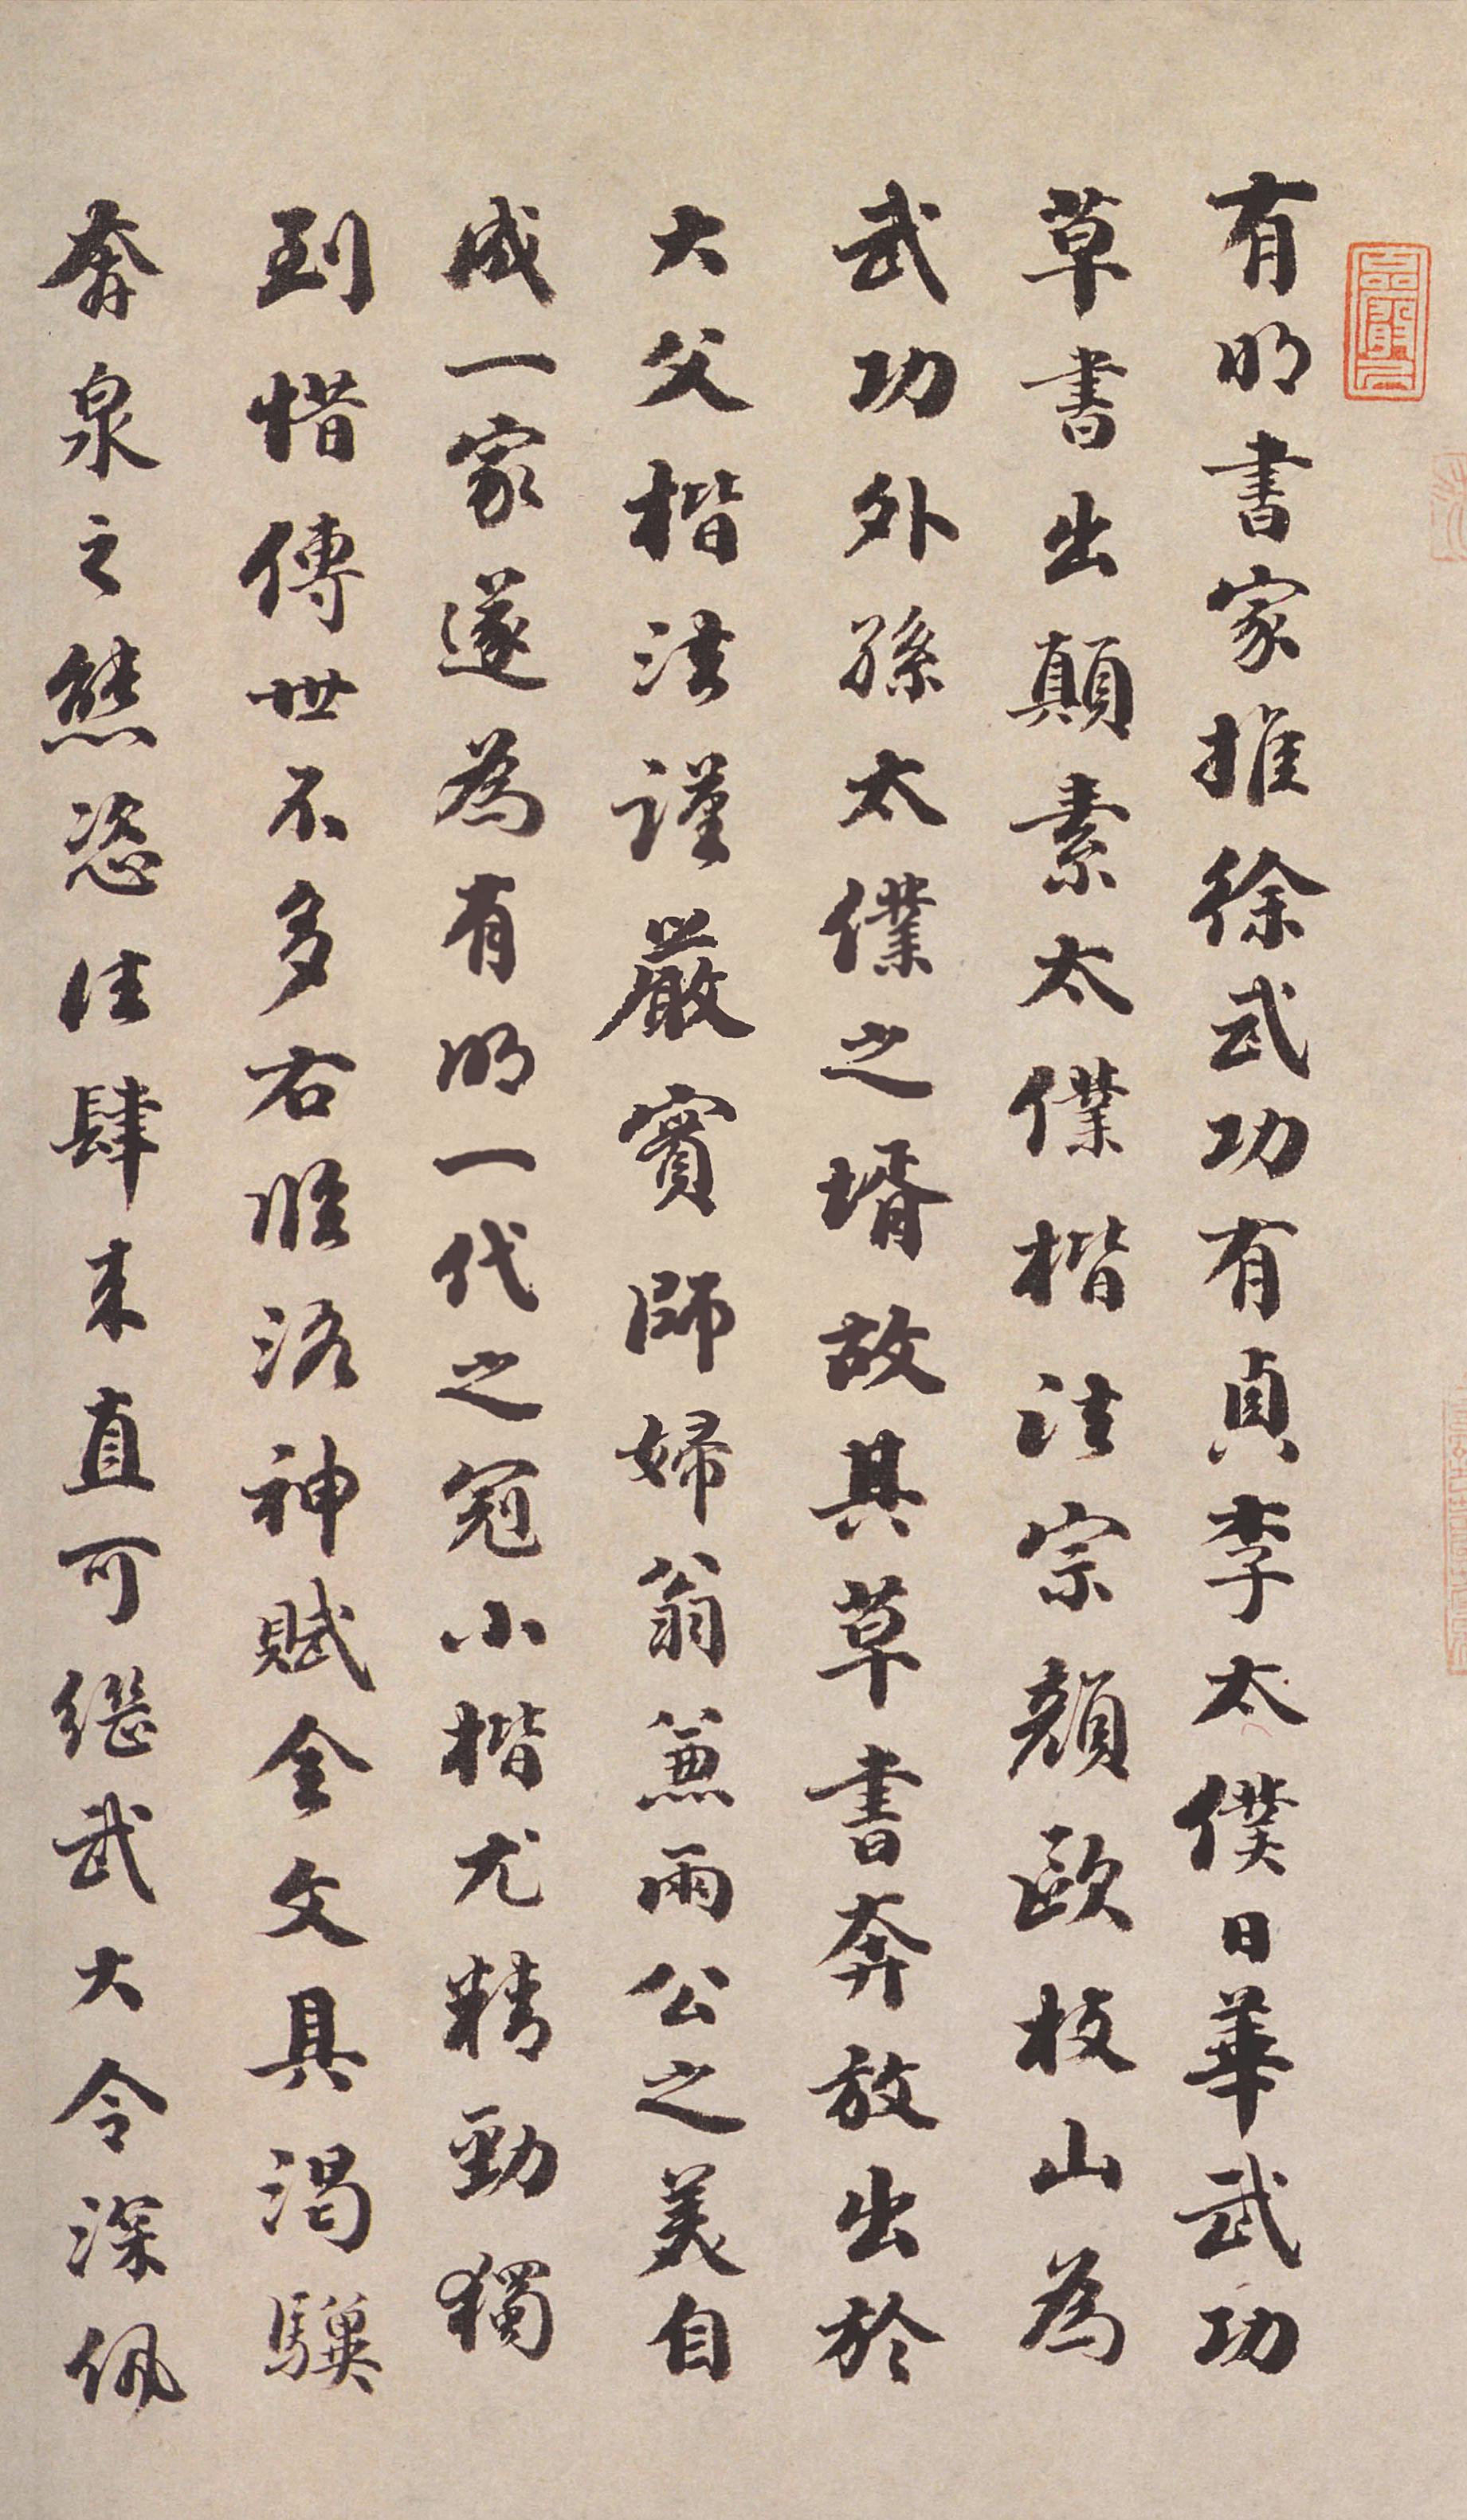 有明書家推徐武功有貞李太僕日華武功
草書出顛素太僕楷法宗顏歐枝山為
武功外孫太僕之壻故其草書奔放出於
大父楷法謹嚴實師婦翁兼兩公之美自
成一家遂為有明一代之冠小楷尤精勁獨
到惜傳世不多右臨洛神賦全文具渴驥
奔泉之態恣往肆來直可繼武大令深佩